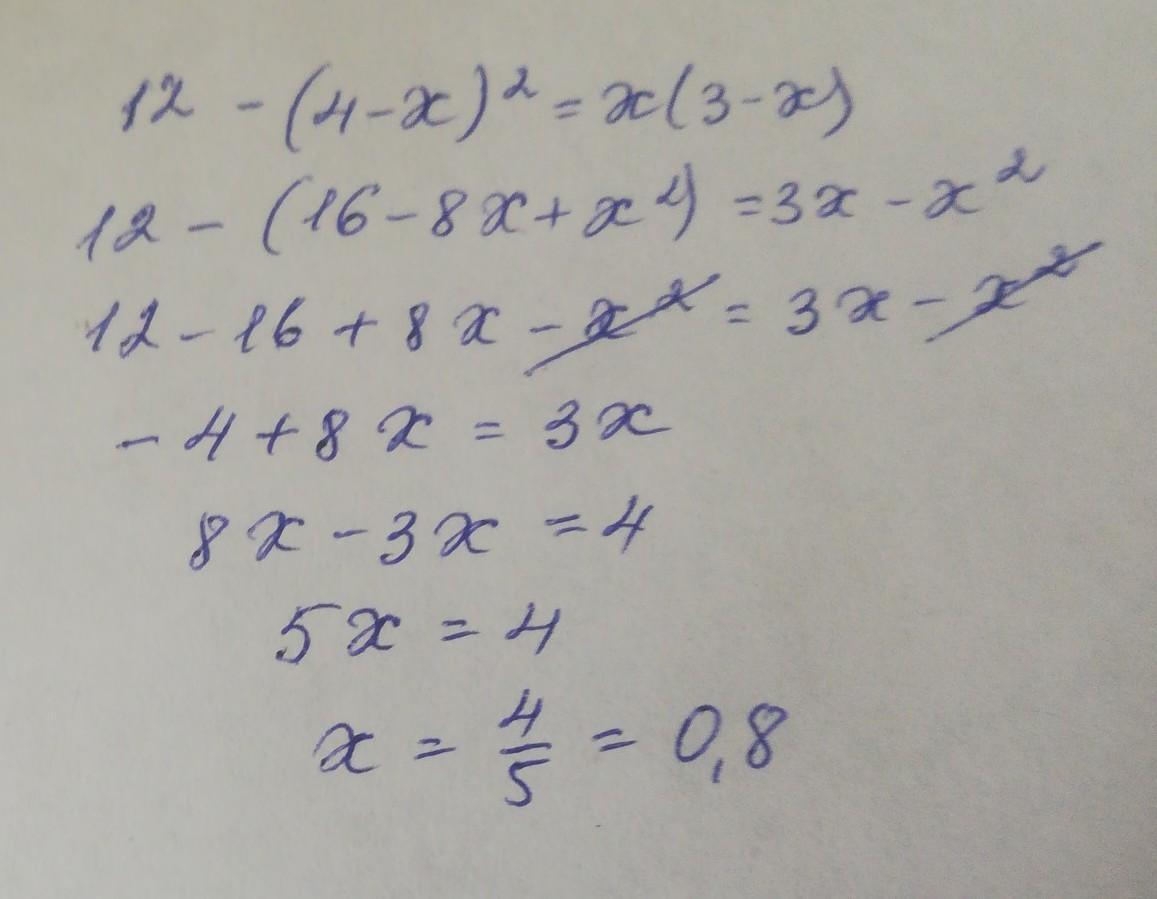 12 - (4-x)² = x(3-x)
12 - (16-8x+x²) = 3x - x²
12 - 16 + 8x - x² = 3x - x²
- 4 + 8x = 3x
8x - 3x = 4
5x = 4
x = 4/5 = 0,8